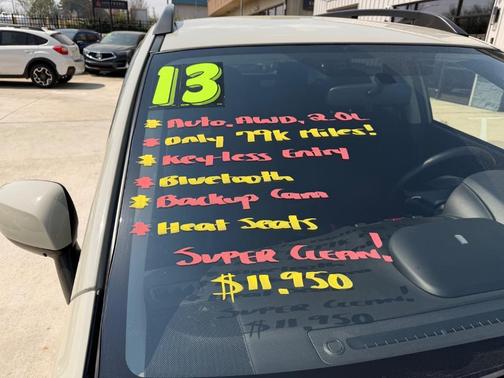 13
* Auto. AWD, 2.0L
* Only 79K Miles!
* Keyless Entry
* Bluetooth
* Backup Cam
* Heat Seats
Super Clean!
$11,950
Super Clean!
$11,950